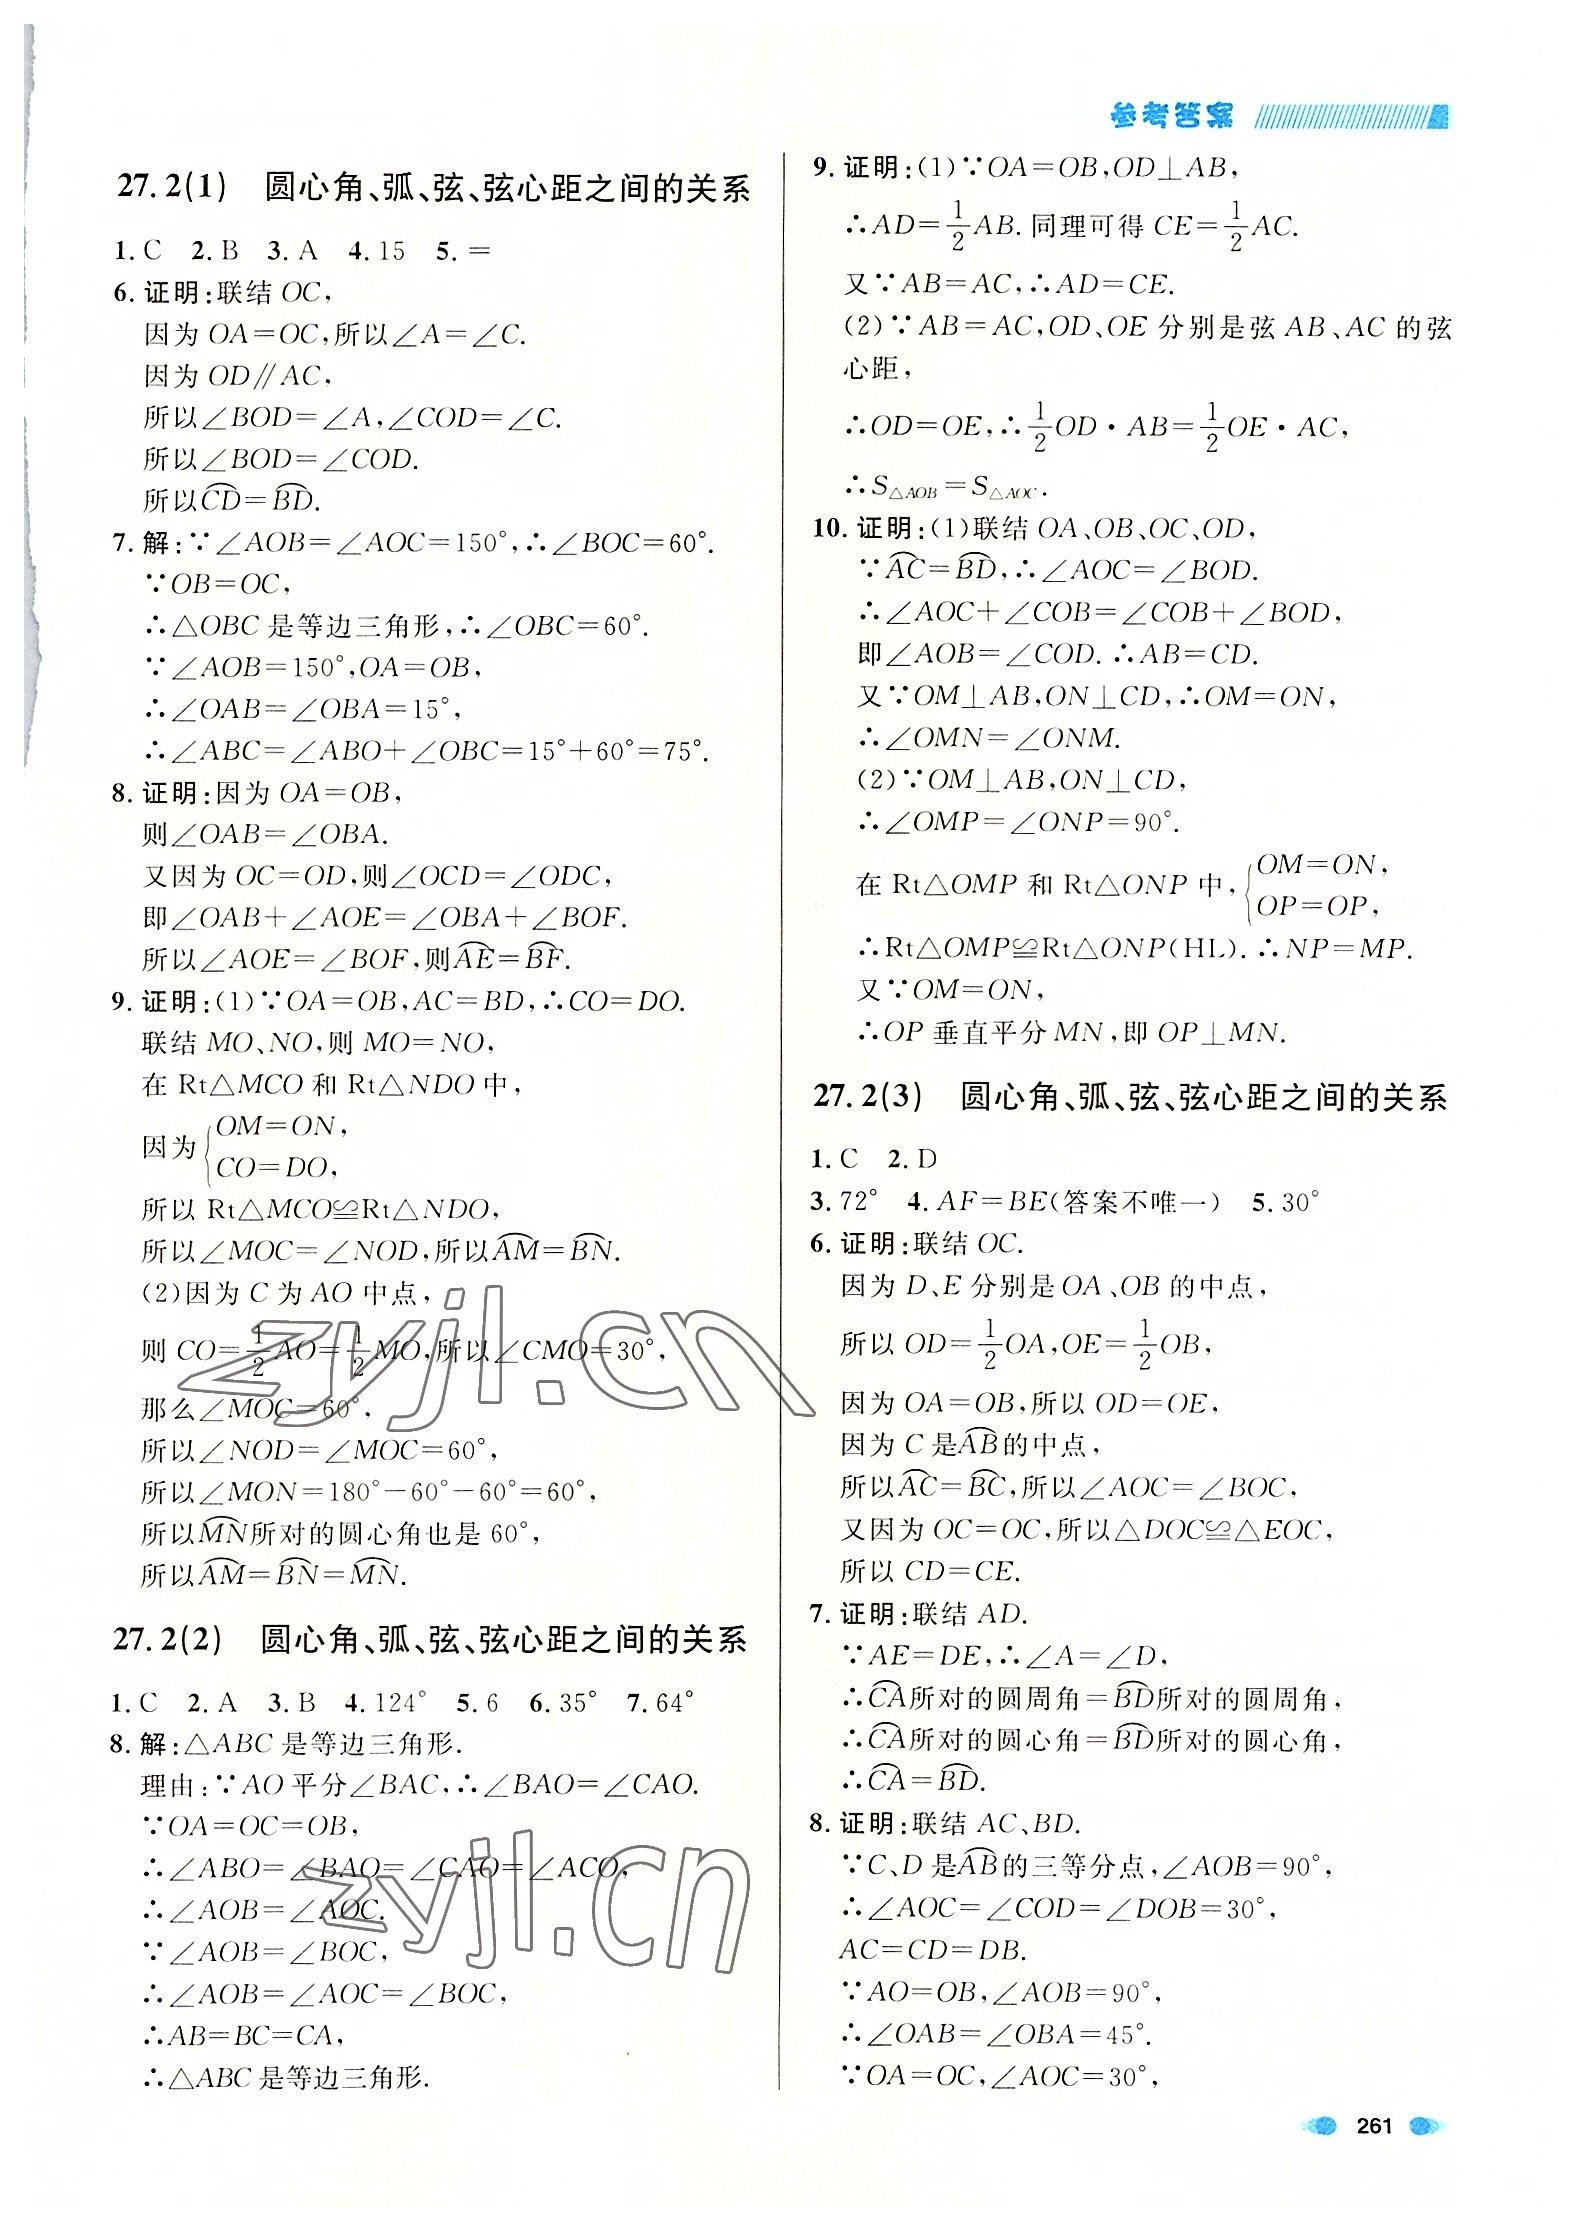 参考答案
27.2(1) 圆心角、弧、弦、弦心距之间的关系
1.C 2.B 3.A 4.15 5.=
6.证明:联结OC,
因为OA=OC,所以∠A=∠C.
因为OD∥AC,
所以∠BOD=∠A,∠COD=∠C.
所以∠BOD=∠COD.
所以C͡D=B͡D.
7.解:∵∠AOB=∠AOC=150°,∴∠BOC=60°.
∵OB=OC,
∴△OBC是等边三角形,∴∠OBC=60°.
∵∠AOB=150°,OA=OB,
∴∠OAB=∠OBA=15°,
∴∠ABC=∠ABO+∠OBC=15°+60°=75°.
8.证明:因为OA=OB,
则∠OAB=∠OBA.
又因为OC=OD,则∠OCD=∠ODC,
即∠OAB+∠AOE=∠OBA+∠BOF.
所以∠AOE=∠BOF,则A͡E=B͡F.
9.证明:(1)∵OA=OB,AC=BD,∴CO=DO.
联结MO、NO,则MO=NO,
在Rt△MCO和Rt△NDO中,
因为{OM=ON,
CO=DO,
所以Rt△MCO≌Rt△NDO,
所以∠MOC=∠NOD,所以A͡M=B͡N.
(2)因为C为AO中点,
则CO=1/2AO=1/2MO,所以∠CMO=30°,
那么∠MOC=60°,
所以∠NOD=∠MOC=60°,
所以∠MON=180°-60°-60°=60°,
所以M͡N所对的圆心角也是60°,
所以A͡M=B͡N=M͡N.
27.2(2) 圆心角、弧、弦、弦心距之间的关系
1.C 2.A 3.B 4.124° 5.6 6.35° 7.64°
8.解:△ABC是等边三角形.
理由:∵AO平分∠BAC,∴∠BAO=∠CAO.
∵OA=OC=OB,
∴∠ABO=∠BAO=∠CAO=∠ACO,
∴∠AOB=∠AOC.
∵∠AOB=∠BOC,
∴∠AOB=∠AOC=∠BOC,
∴AB=BC=CA,
∴△ABC是等边三角形.
9.证明:(1)∵OA=OB,OD⊥AB,
∴AD=1/2AB.同理可得CE=1/2AC.
又∵AB=AC,∴AD=CE.
(2)∵AB=AC,OD、OE分别是弦AB、AC的弦
心距,
∴OD=OE,∴1/2OD·AB=1/2OE·AC,
∴S△AOB=S△AOC.
10.证明:(1)联结OA、OB、OC、OD,
∵A͡C=B͡D,∴∠AOC=∠BOD.
∴∠AOC+∠COB=∠COB+∠BOD,
即∠AOB=∠COD.∴AB=CD.
又∵OM⊥AB,ON⊥CD,∴OM=ON,
∴∠OMN=∠ONM.
(2)∵OM⊥AB,ON⊥CD,
∴∠OMP=∠ONP=90°.
在Rt△OMP和Rt△ONP中,{OM=ON,
OP=OP,
∴Rt△OMP≌Rt△ONP(HL).∴NP=MP.
又∵OM=ON,
∴OP垂直平分MN,即OP⊥MN.
27.2(3) 圆心角、弧、弦、弦心距之间的关系
1.C 2.D
3.72° 4.AF=BE(答案不唯一) 5.30°
6.证明:联结OC.
因为D、E分别是OA、OB的中点,
所以OD=1/2OA,OE=1/2OB,
因为OA=OB,所以OD=OE,
因为C是A͡B的中点,
所以A͡C=B͡C,所以∠AOC=∠BOC,
又因为OC=OC,所以△DOC≌△EOC,
所以CD=CE.
7.证明:联结AD.
∵AE=DE,∴∠A=∠D,
∴C͡A所对的圆周角=B͡D所对的圆周角,
∴C͡A所对的圆心角=B͡D所对的圆心角,
∴C͡A=B͡D.
8.证明:联结AC、BD.
∵C、D是A͡B的三等分点,∠AOB=90°,
∴∠AOC=∠COD=∠DOB=30°,
AC=CD=DB.
∵AO=OB,∠AOB=90°,
∴∠OAB=∠OBA=45°.
∵OA=OC,∠AOC=30°,
zyjl.cn
zyjl.cn
261